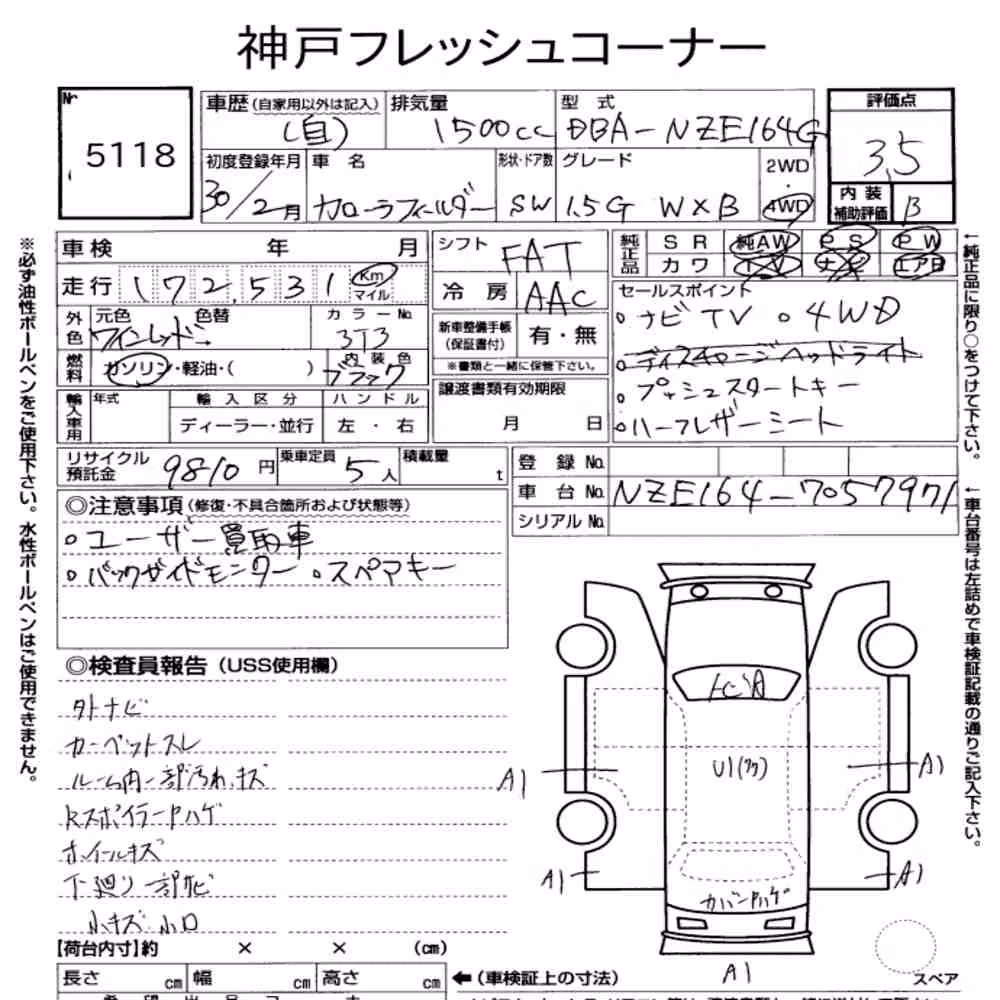 神戸フレッシュコーナー
№ 5118
車歴(自家用以外は記入) (自)
排気量 1500cc
型式 DBA-NZE164G
評価点 3.5
初度登録年月 30/2月
車名 カローラフィールダー
形状・ドア数 SW
グレード 1.5G W×B
2WD・4WD
内装補助評価 B
車検 年 月
シフト FAT
純正品 SR 純AW PS PW
カワ TV ナビ エアB
走行 172,531 Km マイル
冷房 AAC
外色 元色 ワインレッド→ 色替
カラーNo. 3T3
新車整備手帳(保証書付) 有・無
※書類と一緒に保管下さい。
燃料 ガソリン・軽油・( )
内装色 ブラック
譲渡書類有効期限 月 日
セールスポイント
。ナビTV 。4WD
。ディスチャージヘッドライト
。プッシュスタートキー
。ハーフレザーシート
輸入車用 年式 輸入区分 ハンドル
ディーラー・並行 左・右
リサイクル預託金 9810円
乗車定員 5人
積載量 t
登録No.
車台No. NZE164-7057971
シリアルNo.
◎注意事項(修復・不具合箇所および状態等)
。ユーザー買取車
。バックガイドモニター 。スペアキー
◎検査員報告(USS使用欄)
外ナビ
カーペットスレ
ルーム内一部汚れ、キズ
RスポイラーPハゲ
ホイールキズ
下廻り一部サビ
小キズ 小凹
U1(タク)
A1
A1
A1
A1
カバーPハゲ
A1
スペア
【荷台内寸】約 × × (cm)
長さ cm 幅 cm 高さ cm
←(車検証上の寸法)
※必ず油性ボールペンをご使用下さい。水性ボールペンはご使用できません。
←純正品に限り○をつけて下さい。
←車台番号は左詰めで車検証記載の通りご記入下さい。